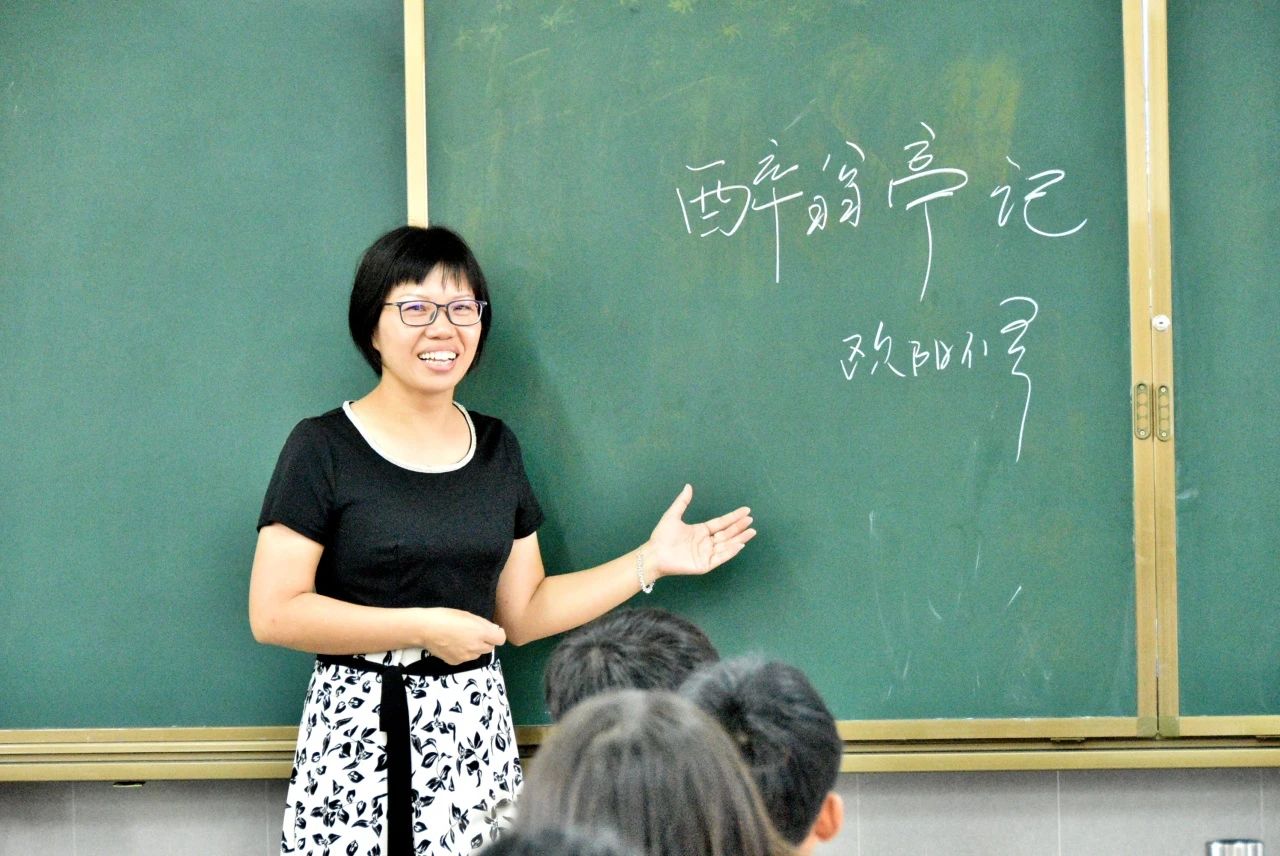 醉翁亭记
欧阳修